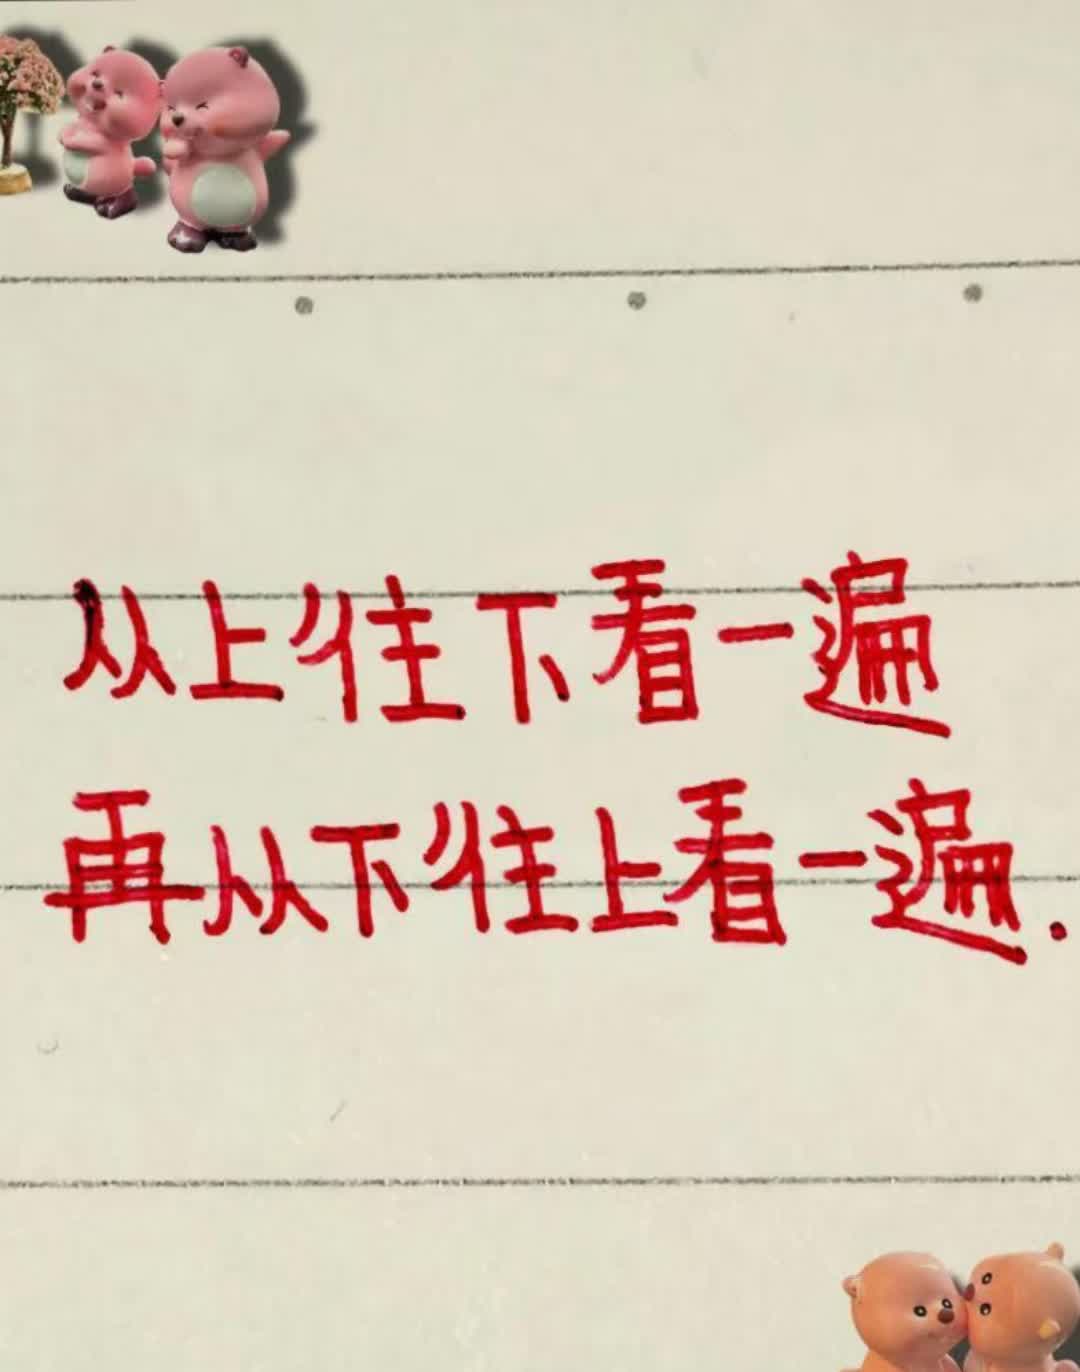 从上往下看一遍
再从下往上看一遍.